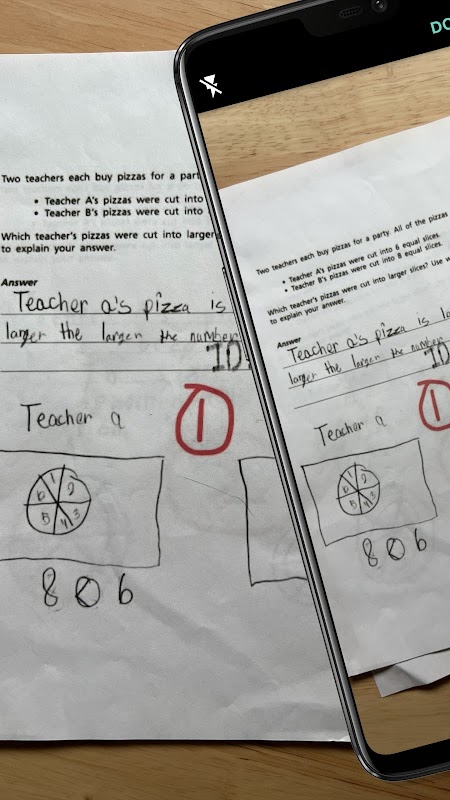 Two teachers each buy pizzas for a part
• Teacher A's pizzas were cut into
• Teacher B's pizzas were cut into
Which teacher's pizzas were cut into larger
to explain your answer.
Answer
Teacher a's pizza is
larger the larger the number
10
Teacher a
1
1
2
3
4
5
6
8 0 6
DO
Two teachers each buy pizzas for a party. All of the pizzas
• Teacher A's pizzas were cut into 6 equal slices.
• Teacher B's pizzas were cut into 8 equal slices.
Which teacher's pizzas were cut into larger slices? Use w
to explain your answer.
Answer
Teacher a's pizza is la
larger the larger the number
10
Teacher a
1
1
2
3
4
5
6
8 0 6